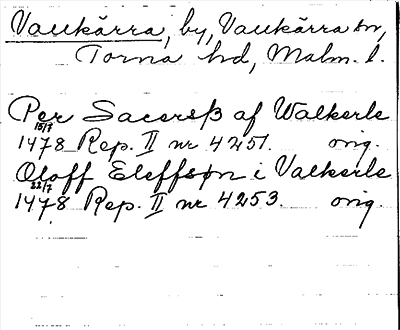 Vankärra, by, Vankärra sn,
Torna hd, Malm. l.
Per Sacersß af Walkerle
15/7
1478 Rep. II nr 4251. orig.
Oloff Eleffsøn i Valkerle
22/7
1478 Rep. II nr 4253. orig.